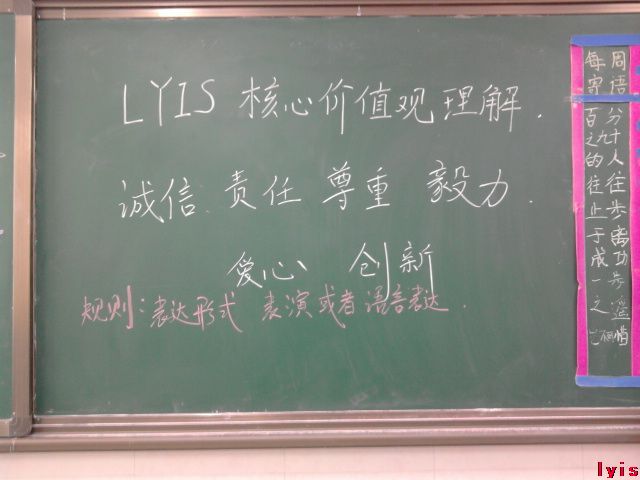 LYIS 核心价值观理解.
诚信、责任 尊重 毅力.
爱心 创新
规则:表达形式 表演或者语言表达.
每周
寄语
百分
之九十
的人往
往止步
于成功
一步之遥
lyis